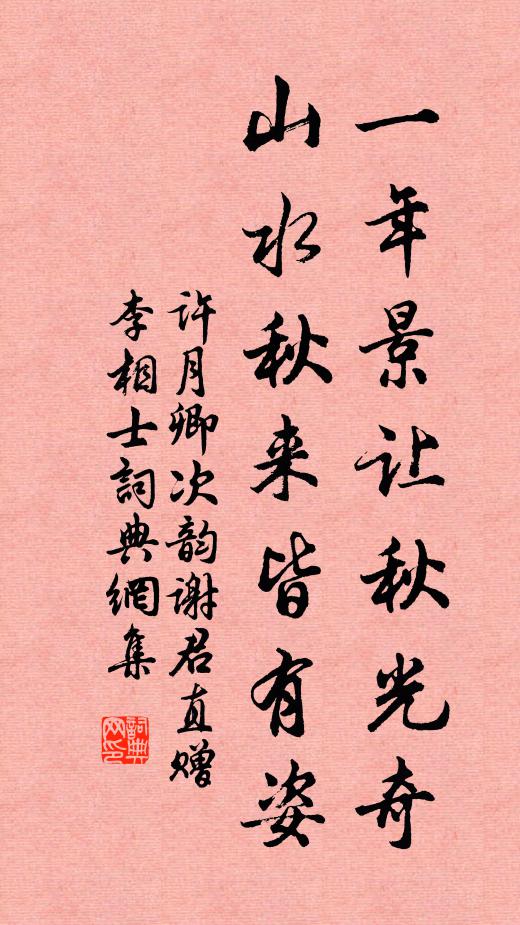 一年景让秋光奇
山水秋来皆有姿
许月卿次韵谢君直赠
李相士詞典網集
詞典網印